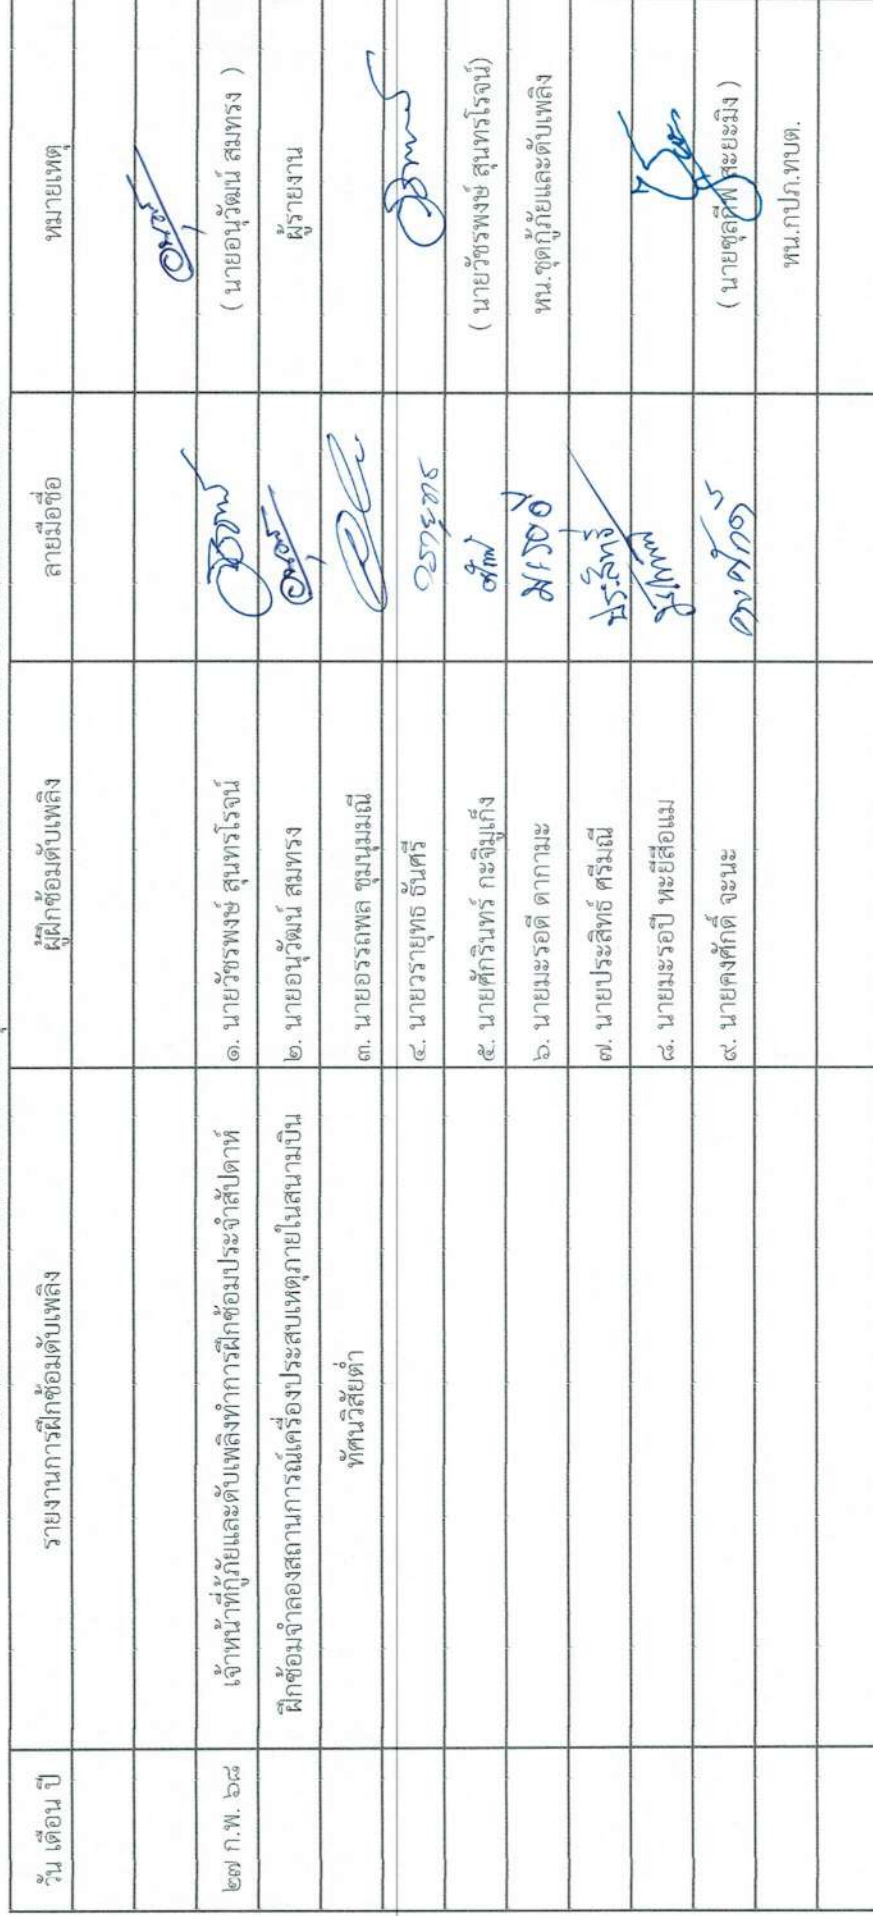 วัน เดือน ปี รายงานการฝึกซ้อมดับเพลิง ผู้ฝึกซ้อมดับเพลิง ลายมือชื่อ หมายเหตุ
อนุวัฒน์
๒๗ ก.พ. ๖๘ เจ้าหน้าที่กู้ภัยและดับเพลิงทำการฝึกซ้อมประจำสัปดาห์ ๑. นายวัชรพงษ์ สุนทรโรจน์ ( นายอนุวัฒน์ สมทรง )
ฝึกซ้อมจำลองสถานการณ์เครื่องประสบเหตุภายในสนามบิน ๒. นายอนุวัฒน์ สมทรง ผู้รายงาน
ทัศนวิสัยต่ำ ๓. นายอรรถพล ชุมนุมมณี
๔. นายวรายุทธ ธันศรี วรายุทธ
๕. นายศักรินทร์ กะจิมูเก็ง ( นายวัชรพงษ์ สุนทรโรจน์)
๖. นายมะรอดี ดากามะ มะรอดี หน.ชุดกู้ภัยและดับเพลิง
๗. นายประสิทธิ์ ศรีมณี ประสิทธิ์
๘. นายมะรอปี หะยีสือแม
๙. นายคงศักดิ์ จะนะ คงศักดิ์ ( นายซุลกิฟ สะยะมิง )
หน.กปภ.ทบต.